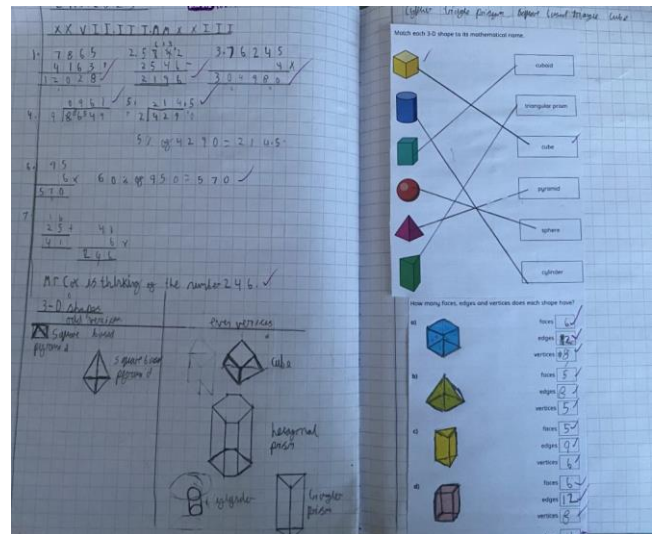 1. 7865
4163
12028
2546
2196
3,76245
304980
4.
5.
2145
5% of 4290 = 214.5
6. 95
6x
570
60% of 950 = 570
7.
25+
41
41
6x
246
Mr Cox is thinking of the number 246.
3-D shapes
odd vertices
even vertices
square based
pyramid
square based
pyramid
Cube
hexagonal
prism
prism
Cube
Match each 3-D shape to its mathematical name.
cuboid
triangular prism
cube
pyramid
sphere
cylinder
How many faces, edges and vertices does each shape have?
a)
faces 6
edges 12
vertices 8
b)
faces 5
edges 8
vertices 5
c)
faces 5
edges 9
vertices 6
d)
faces 6
edges 12
vertices 8